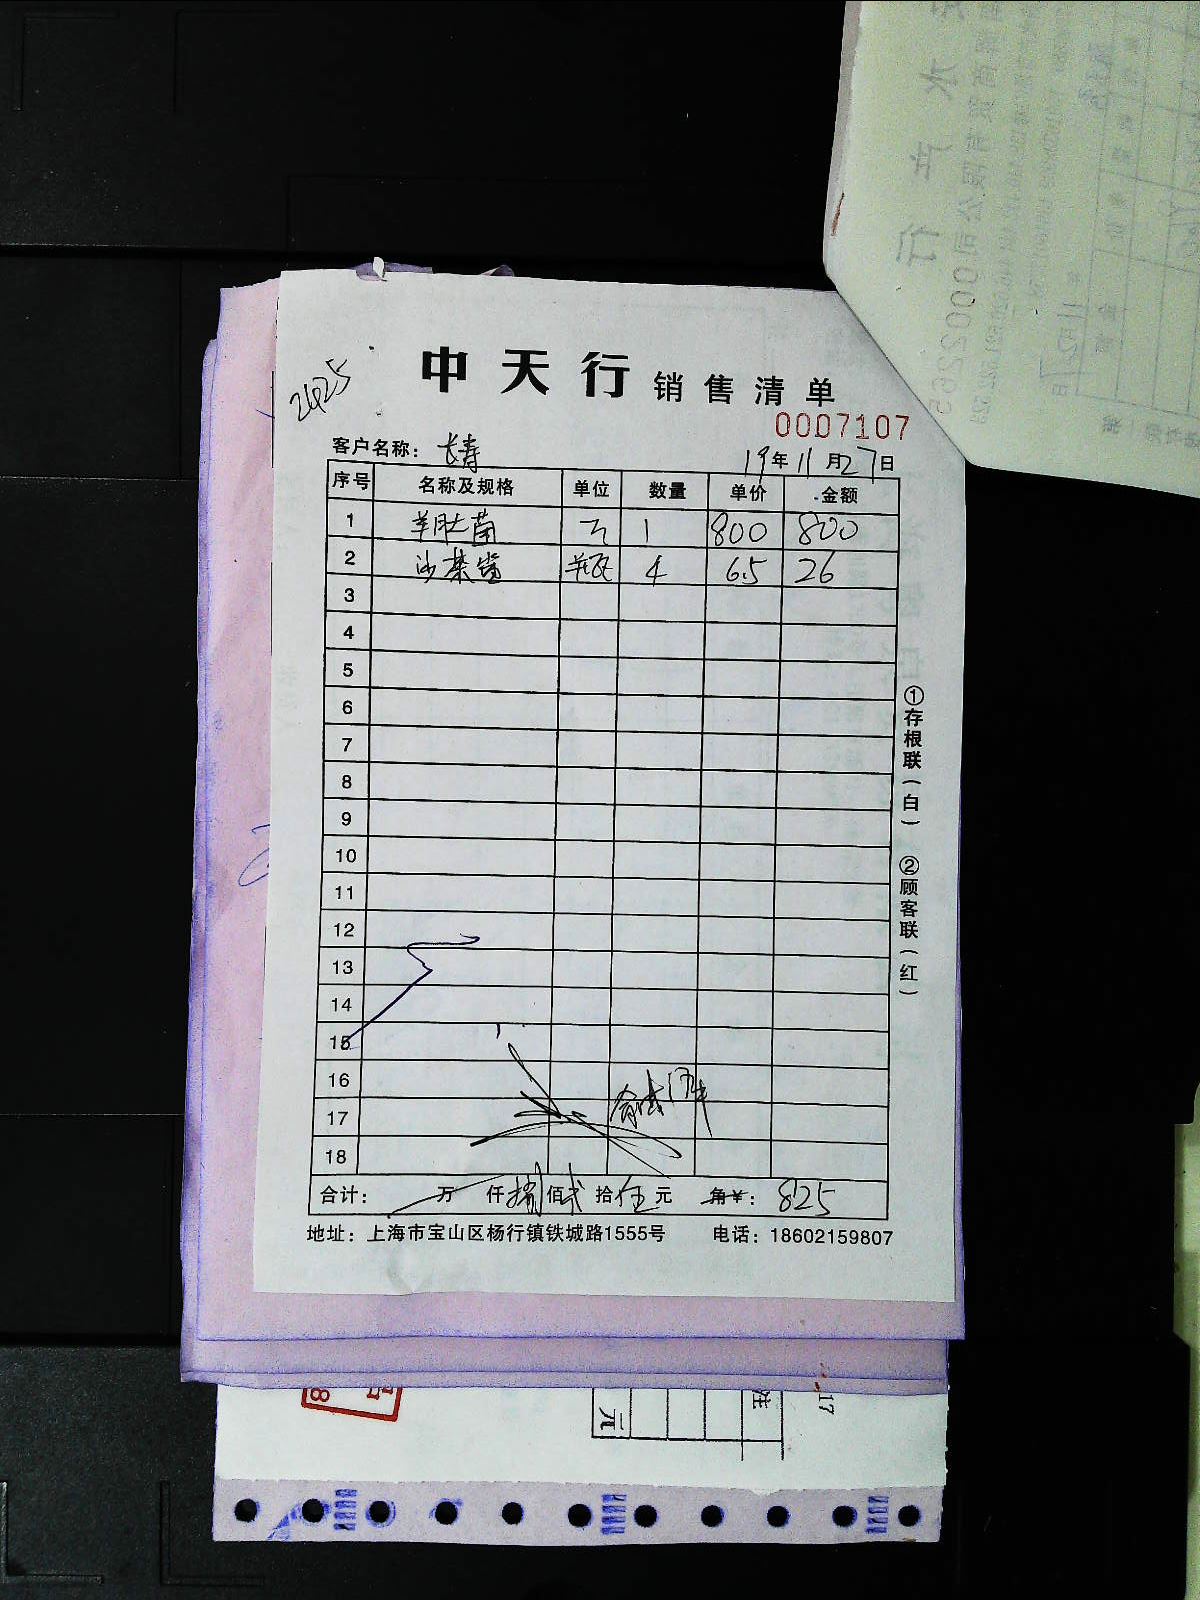 2425
中天行 销售清单
0007107
客户名称： 长寿 19年11月27日
序号 名称及规格 单位 数量 单价 金额
1 羊肚菌 斤 1 800 800
2 沙茶酱 瓶 4 6.5 26
3
4
5
6
7
8
9
10
11
12
13
14
15
16
17
18
合计： 万 仟 捌 佰 贰 拾 伍 元 角￥： 825
地址：上海市宝山区杨行镇铁城路1555号 电话：18602159807
①存根联（白） ②顾客联（红）
元
注
17
8
0002265